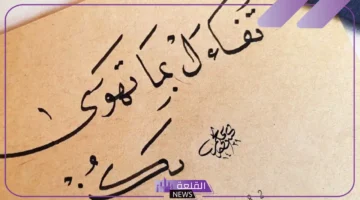 تَفَاءَلْ بِمَا تَهْوَى
يَكُنْ
القلعة
NEWS